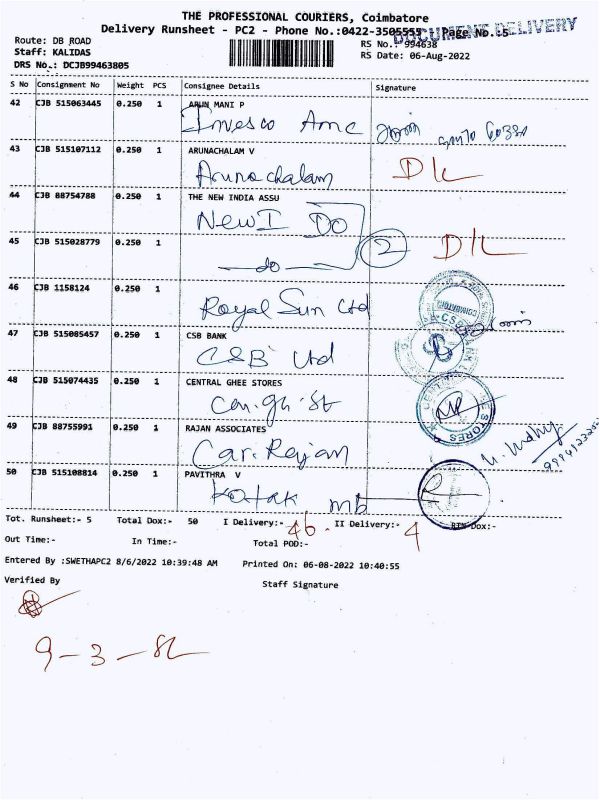 THE PROFESSIONAL COURIERS, Coimbatore
Delivery Runsheet - PC2 - Phone No.:0422-3505555 Page No.:5
DOCUMENT DELIVERY
Route: DB ROAD
RS No.: 994638
Staff: KALIDAS
RS Date: 06-Aug-2022
DRS No.: DCJB99463805
S No Consignment No Weight PCS Consignee Details Signature
42 CJB 515063445 0.250 1 ARUN MANI P
Invesco Amc
43 CJB 515107112 0.250 1 ARUNACHALAM V
Arunachalam D/L
44 CJB 88754788 0.250 1 THE NEW INDIA ASSU
New I Do
45 CJB 515028779 0.250 1 2 D/L
do
46 CJB 1158124 0.250 1
Royal Sun Ltd
47 CJB 515085457 0.250 1 CSB BANK
CSB Ltd
48 CJB 515074435 0.250 1 CENTRAL GHEE STORES
Cen. gh. St
49 CJB 88755991 0.250 1 RAJAN ASSOCIATES
Car. Rajan
50 CJB 515108814 0.250 1 PAVITHRA V
Kotak mb
Tot. Runsheet:- 5 Total Dox:- 50 I Delivery:- 46 II Delivery:- 4 RTN Dox:-
Out Time:- In Time:- Total POD:-
Entered By :SWETHAPC2 8/6/2022 10:39:48 AM Printed On: 06-08-2022 10:40:55
Verified By Staff Signature